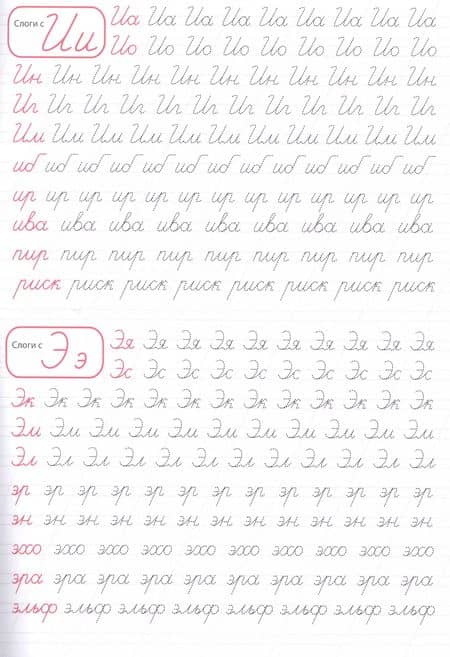 Слоги с И и
Иа Иа Иа Иа Иа Иа Иа Иа Иа
Ио Ио Ио Ио Ио Ио Ио Ио Ио
Ин Ин Ин Ин Ин Ин Ин Ин Ин Ин Ин
Иг Иг Иг Иг Иг Иг Иг Иг Иг Иг Иг Иг
Им Им Им Им Им Им Им Им Им Им Им
иб иб иб иб иб иб иб иб иб иб иб иб иб
ир ир ир ир ир ир ир ир ир ир ир ир ир
ива ива ива ива ива ива ива ива ива
пир пир пир пир пир пир пир пир пир
риск риск риск риск риск риск риск риск
Слоги с Э э
Эя Эя Эя Эя Эя Эя Эя Эя Эя Эя
Эс Эс Эс Эс Эс Эс Эс Эс Эс Эс
Эк Эк Эк Эк Эк Эк Эк Эк Эк Эк Эк Эк
Эм Эм Эм Эм Эм Эм Эм Эм Эм Эм Эм
Эл Эл Эл Эл Эл Эл Эл Эл Эл Эл Эл Эл
эр эр эр эр эр эр эр эр эр эр эр эр эр
эн эн эн эн эн эн эн эн эн эн эн эн эн
эхо эхо эхо эхо эхо эхо эхо эхо эхо эхо
эра эра эра эра эра эра эра эра эра эра
эльф эльф эльф эльф эльф эльф эльф эльф